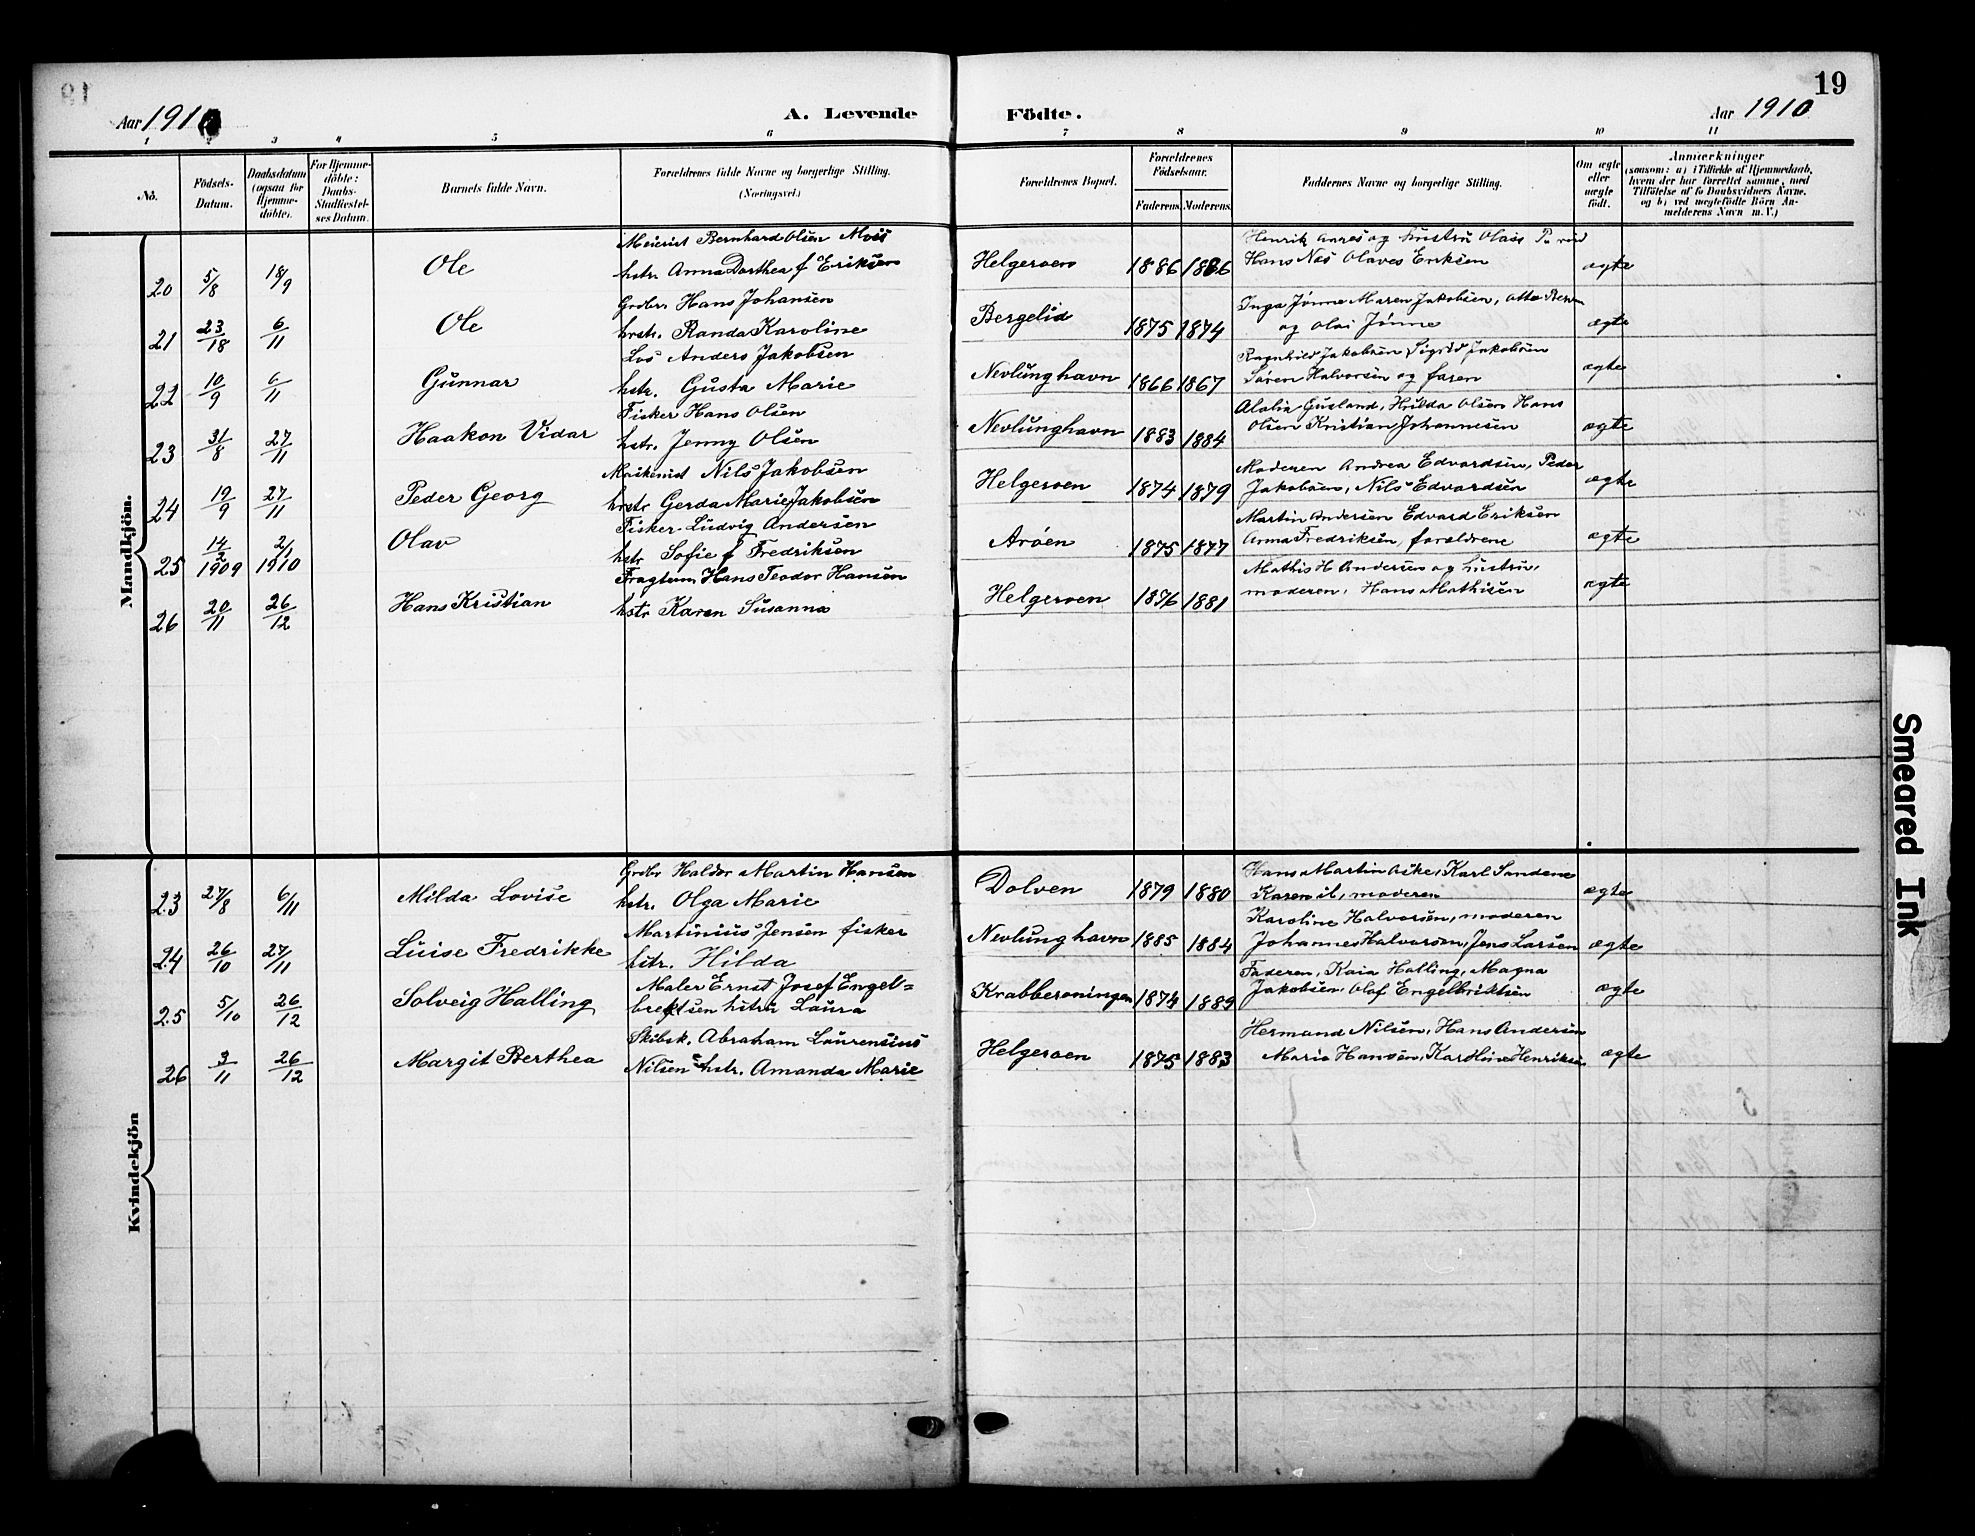 19
Aar 1910
A. Levende
Födte.
Aar 1910
1 2 3 4 5 6 7 8 9 10 11
No.
Födsels-Datum.
Daabsdatum (ogsaa for Hjemme-döbte).
For Hjemme-döbte: Daabs-Stadfæstel-ses Datum.
Barnets fulde Navn.
Forældrenes fulde Navne og borgerlige Stilling. (Næringsvei.)
Forældrenes Bopæl.
Forældrenes Födselsaar.
Faderens. Moderens.
Faddernes Navne og borgerlige Stilling.
Om ægte eller uægte födt.
Anmærkninger
(saasom: a) i Tilfælde af Hjemmedaab, hvem der har forrettet samme, med Tilföielse af to Daabsvidners Navne, og b) ved uægtefödte Börn An-melderens Navn m. V.)
Mandkjön.
Meierist Bernhard Olsen
20 5/8 18/9 Ole hstr. Anna Dorthea f Eriksen Helgeroen 1886 1886 Hans Næs Olaves Eriksen ægte
Grdbr. Hans Johansen Inga Jönne Maren Jakobsen, Otto
21 23/18 6/11 Ole hrstr. Randa Karoline Bergelid 1875 1874 og Olai Jönne ægte
Los Anders Jakobsen Ragnhild Jakobsen, Sigrid Jakobsen
22 10/9 6/11 Gunnar hstr. Gusta Marie Nevlunghavn 1866 1867 Sören Halvorsen og faren ægte
Fisker Hans Olsen Hilda Olsen Hans
23 31/8 27/11 Haakon Vidar hstr. Jenny Olsen Nevlunghavn 1883 1884 Olsen Kristian Johannesen ægte
Maskenist Nils Jakobsen Moderen Andrea Edvardsen, Peder
24 19/9 27/11 Peder Georg hrstr Gerda Marie Jakobsen Helgeroen 1874 1879 Jakobsen, Nils Edvardsen ægte
Fisker Ludvig Andersen Martin Andersen Edvard Eriksen
25 14/2 1909 2/1 1910 Olav hstr Sofie f Fredriksen Aröen 1875 1877 Anna Fredriksen, forældrene ægte
Fragtem. Hans Teodor Hansen Mathis H Andersen og hustru,
26 20/11 26/12 Hans Kristian hstr Karen Susanna Helgeroen 1876 1881 moderen, Hans Mathisen ægte
Kvindekjön
Grdbr Haldor Martin Hansen Hans Martin Aske, Karl Sandene
23 27/8 6/11 Milda Lovise hstr. Olga Marie Dolven 1879 1880 Karen il, moderen ægte
Martinius Jensen fisker Karoline Halvorsen, moderen
24 26/10 27/11 Luise Fredrikke hstr. Hilda Nevlunghavn 1885 1884 Johannes Halvorsen, Jens Larsen ægte
Maler Ernst Josef Engel= Faderen, Kaia Halling, Magna
25 5/10 26/12 Solveig Halling brektsen hstru Laura Krabberöningen 1874 1889 Jakobsen, Olaf Engelbriktsen ægte
Skibsk. Abraham Laurensius Hermand Nilsen, Hans Andersen
26 3/11 26/12 Margit Berthea Nilsen hstr. Amanda Marie Helgeroen 1875 1883 Maria Hansen, Karoline Henriksen ægte
Smeared Ink